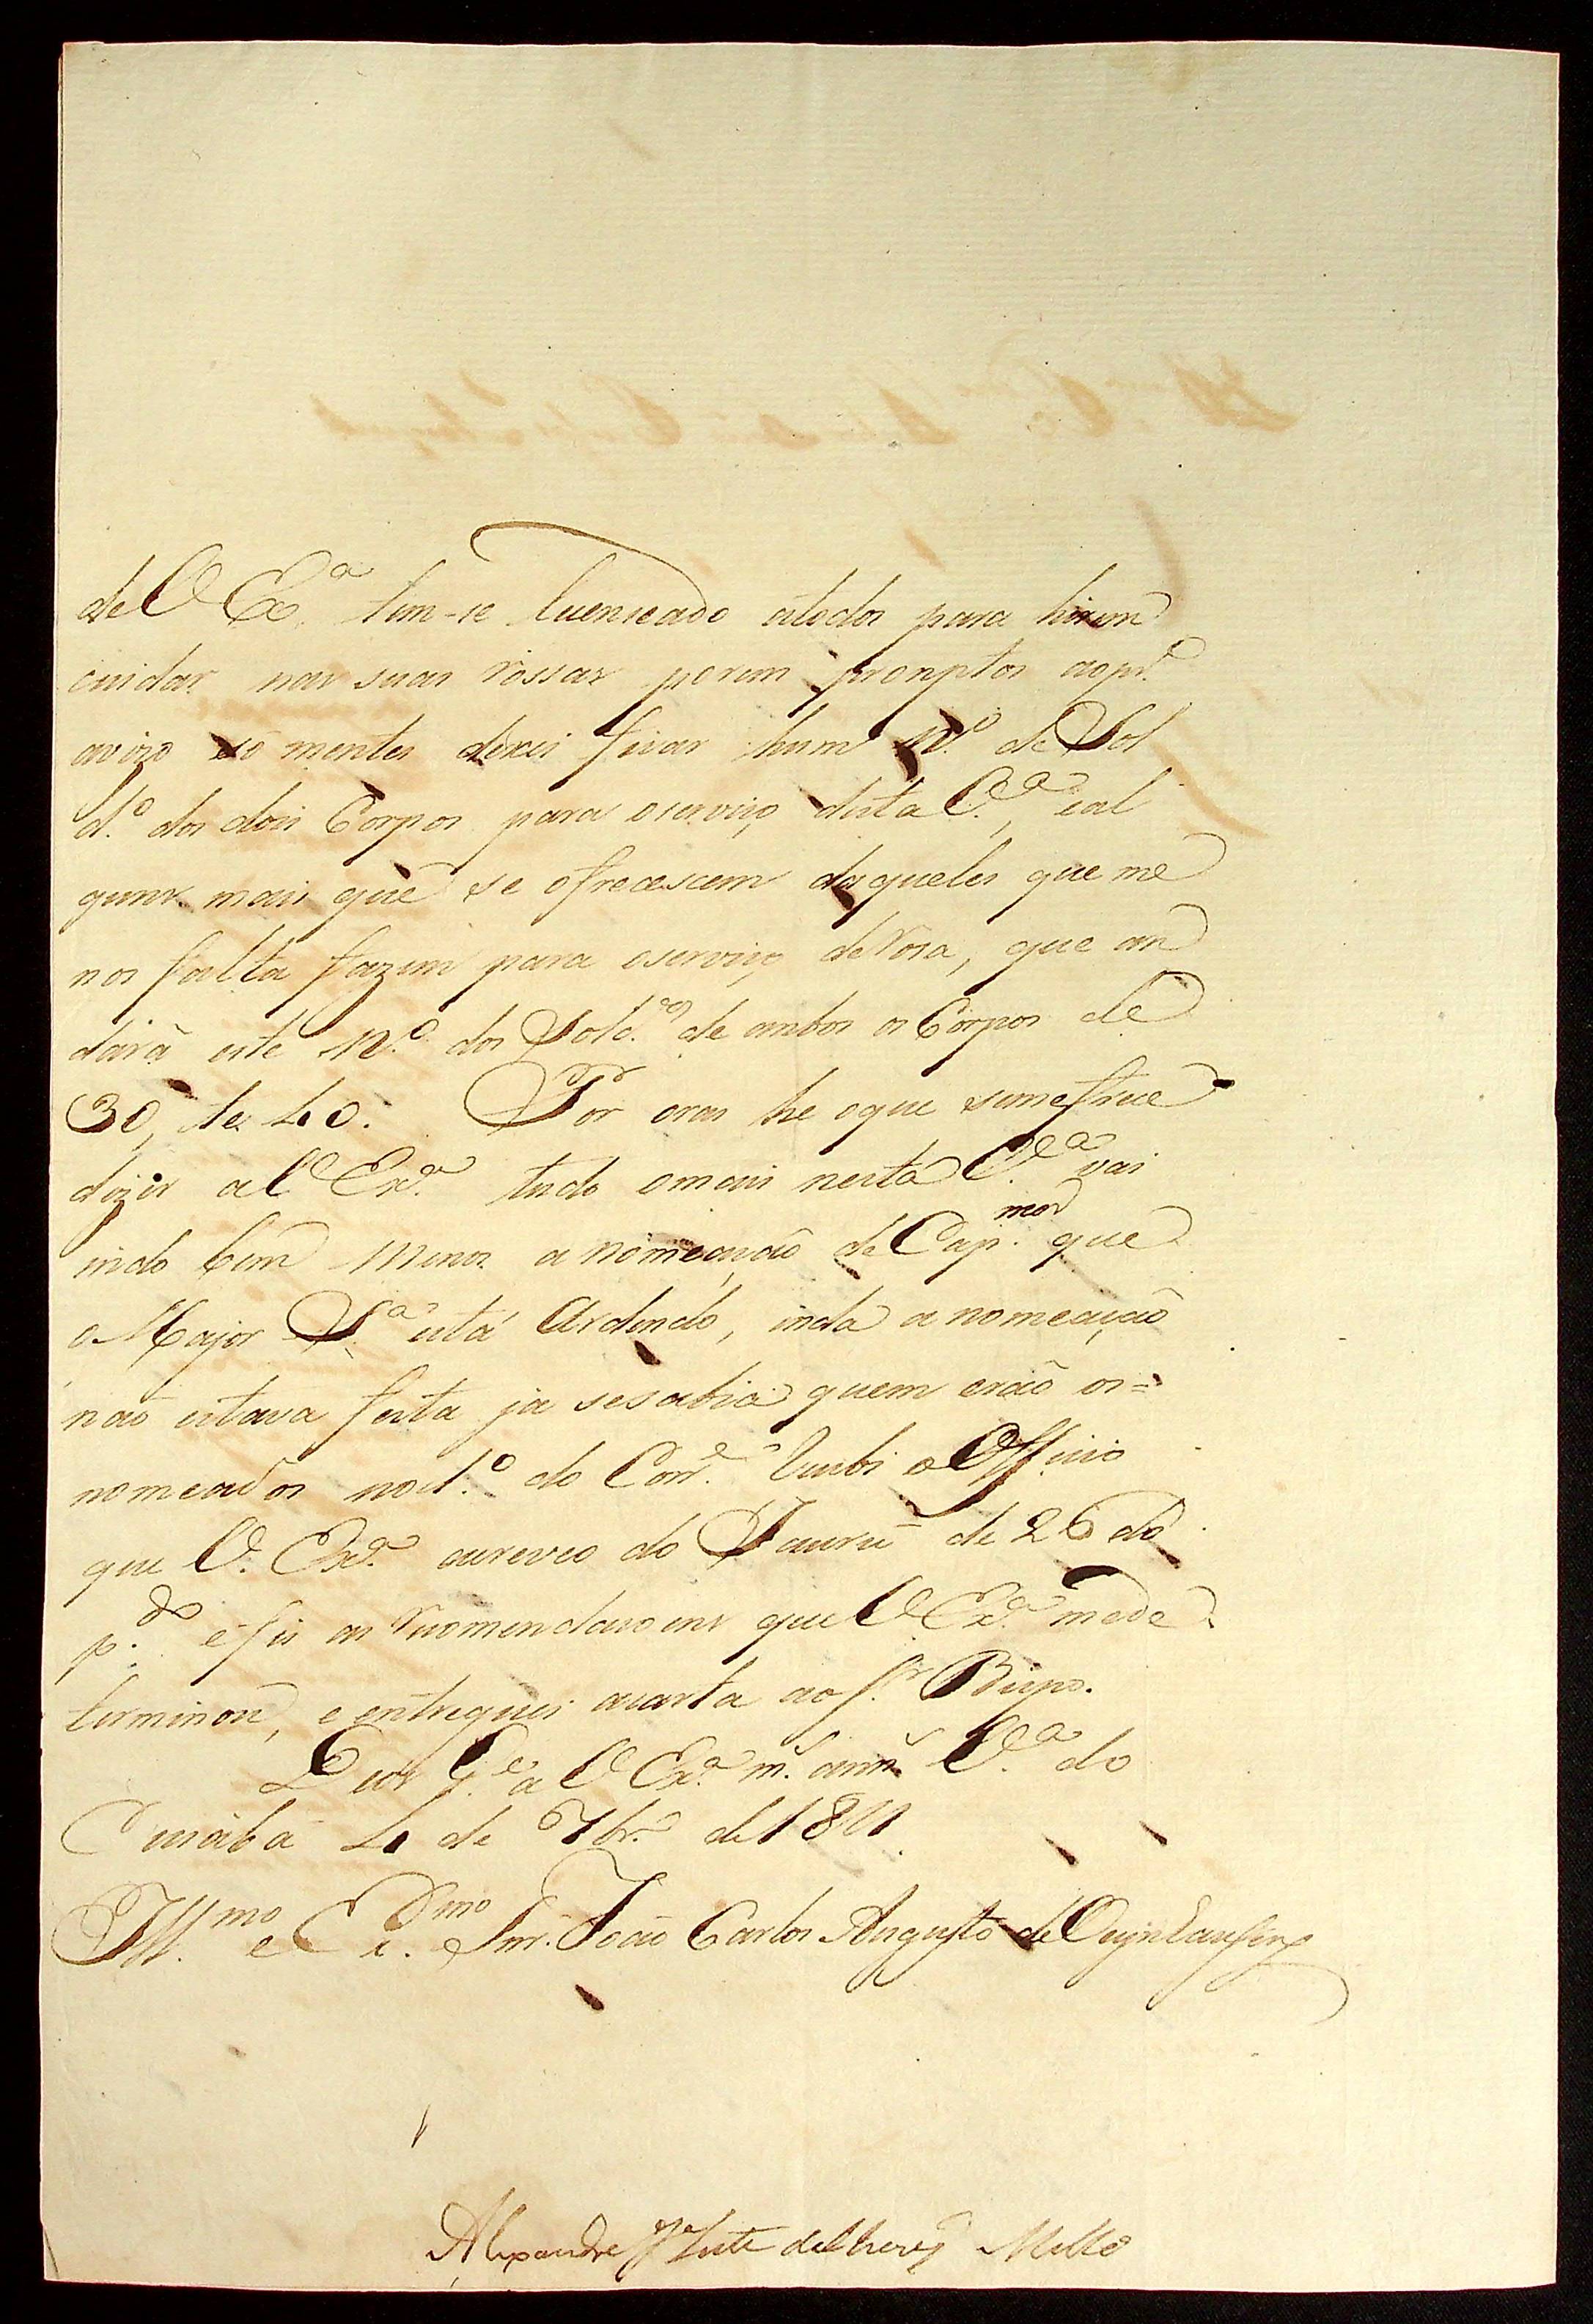 de V Exª. tem-se licenseado átodos para hirem
cuidar nas suas rossas porem promptos aopr.º
avizo só mentes deixei ficar hum N.º de Sol
d.º dos dois Corpos para oserviço desta V.ª, eal
guns mais que se ofrecescem daqueles que me
nos falta fazem para oserviço deRosa, que an
dará este N.º dos Sold.os de ambos os Corpos de
30, te 40. Por oras he oque seme ofrece
dizer a V Exª. tudo omais nesta V.ª vai
indo bem menos a nomeação de Cap.mor que
o Major S.ª está Ardendo, inda a nomeação
não estava feita ja sesabia quem erão os=
nomeados no 1.º do Corr.e Recebi o Officio
que V. Exª. escreveo do Jauru de 26 do
p.do e fis as recomendasoens que V Exª. mede
terminou, e entreguei acarta ao S.r Bispo.
Deos G.e a V Exª. m.s ann.s V.ª do
Cuiabá 4 de 7br.º de 1811
Ill.mo e Ex.mo Snr. João Carlos Augusto de Oeynhausen
Alexandre Jze Leite de Chaves Mello